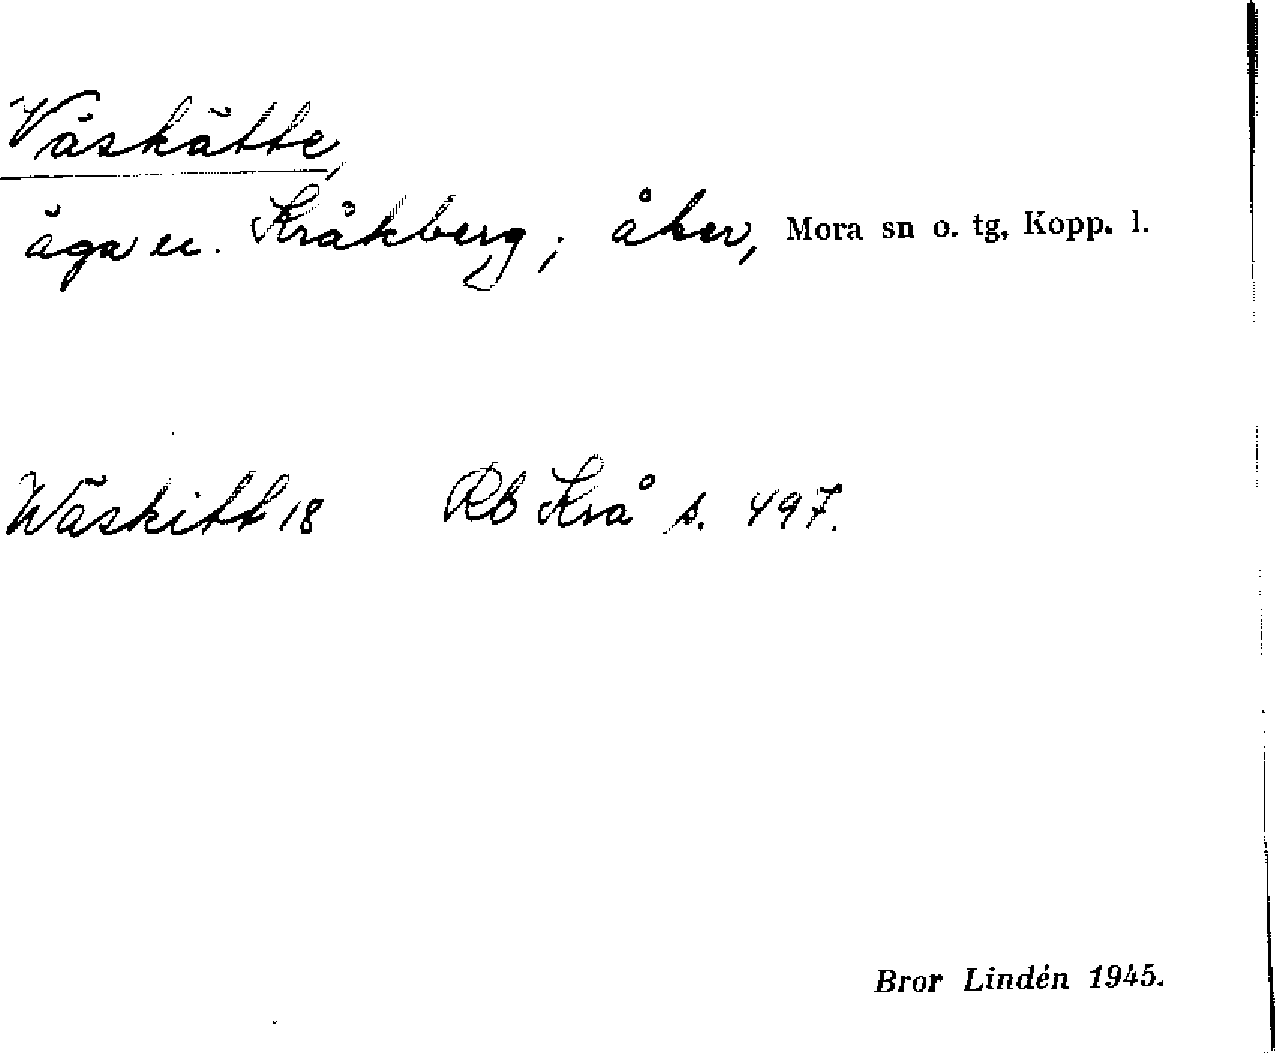 Väskätte,
äga u. Kråkberg; åker, Mora sn o. tg, Kopp. l.
Wäskitt 18 Rb Krå s. 497.
Bror Lindén 1945.